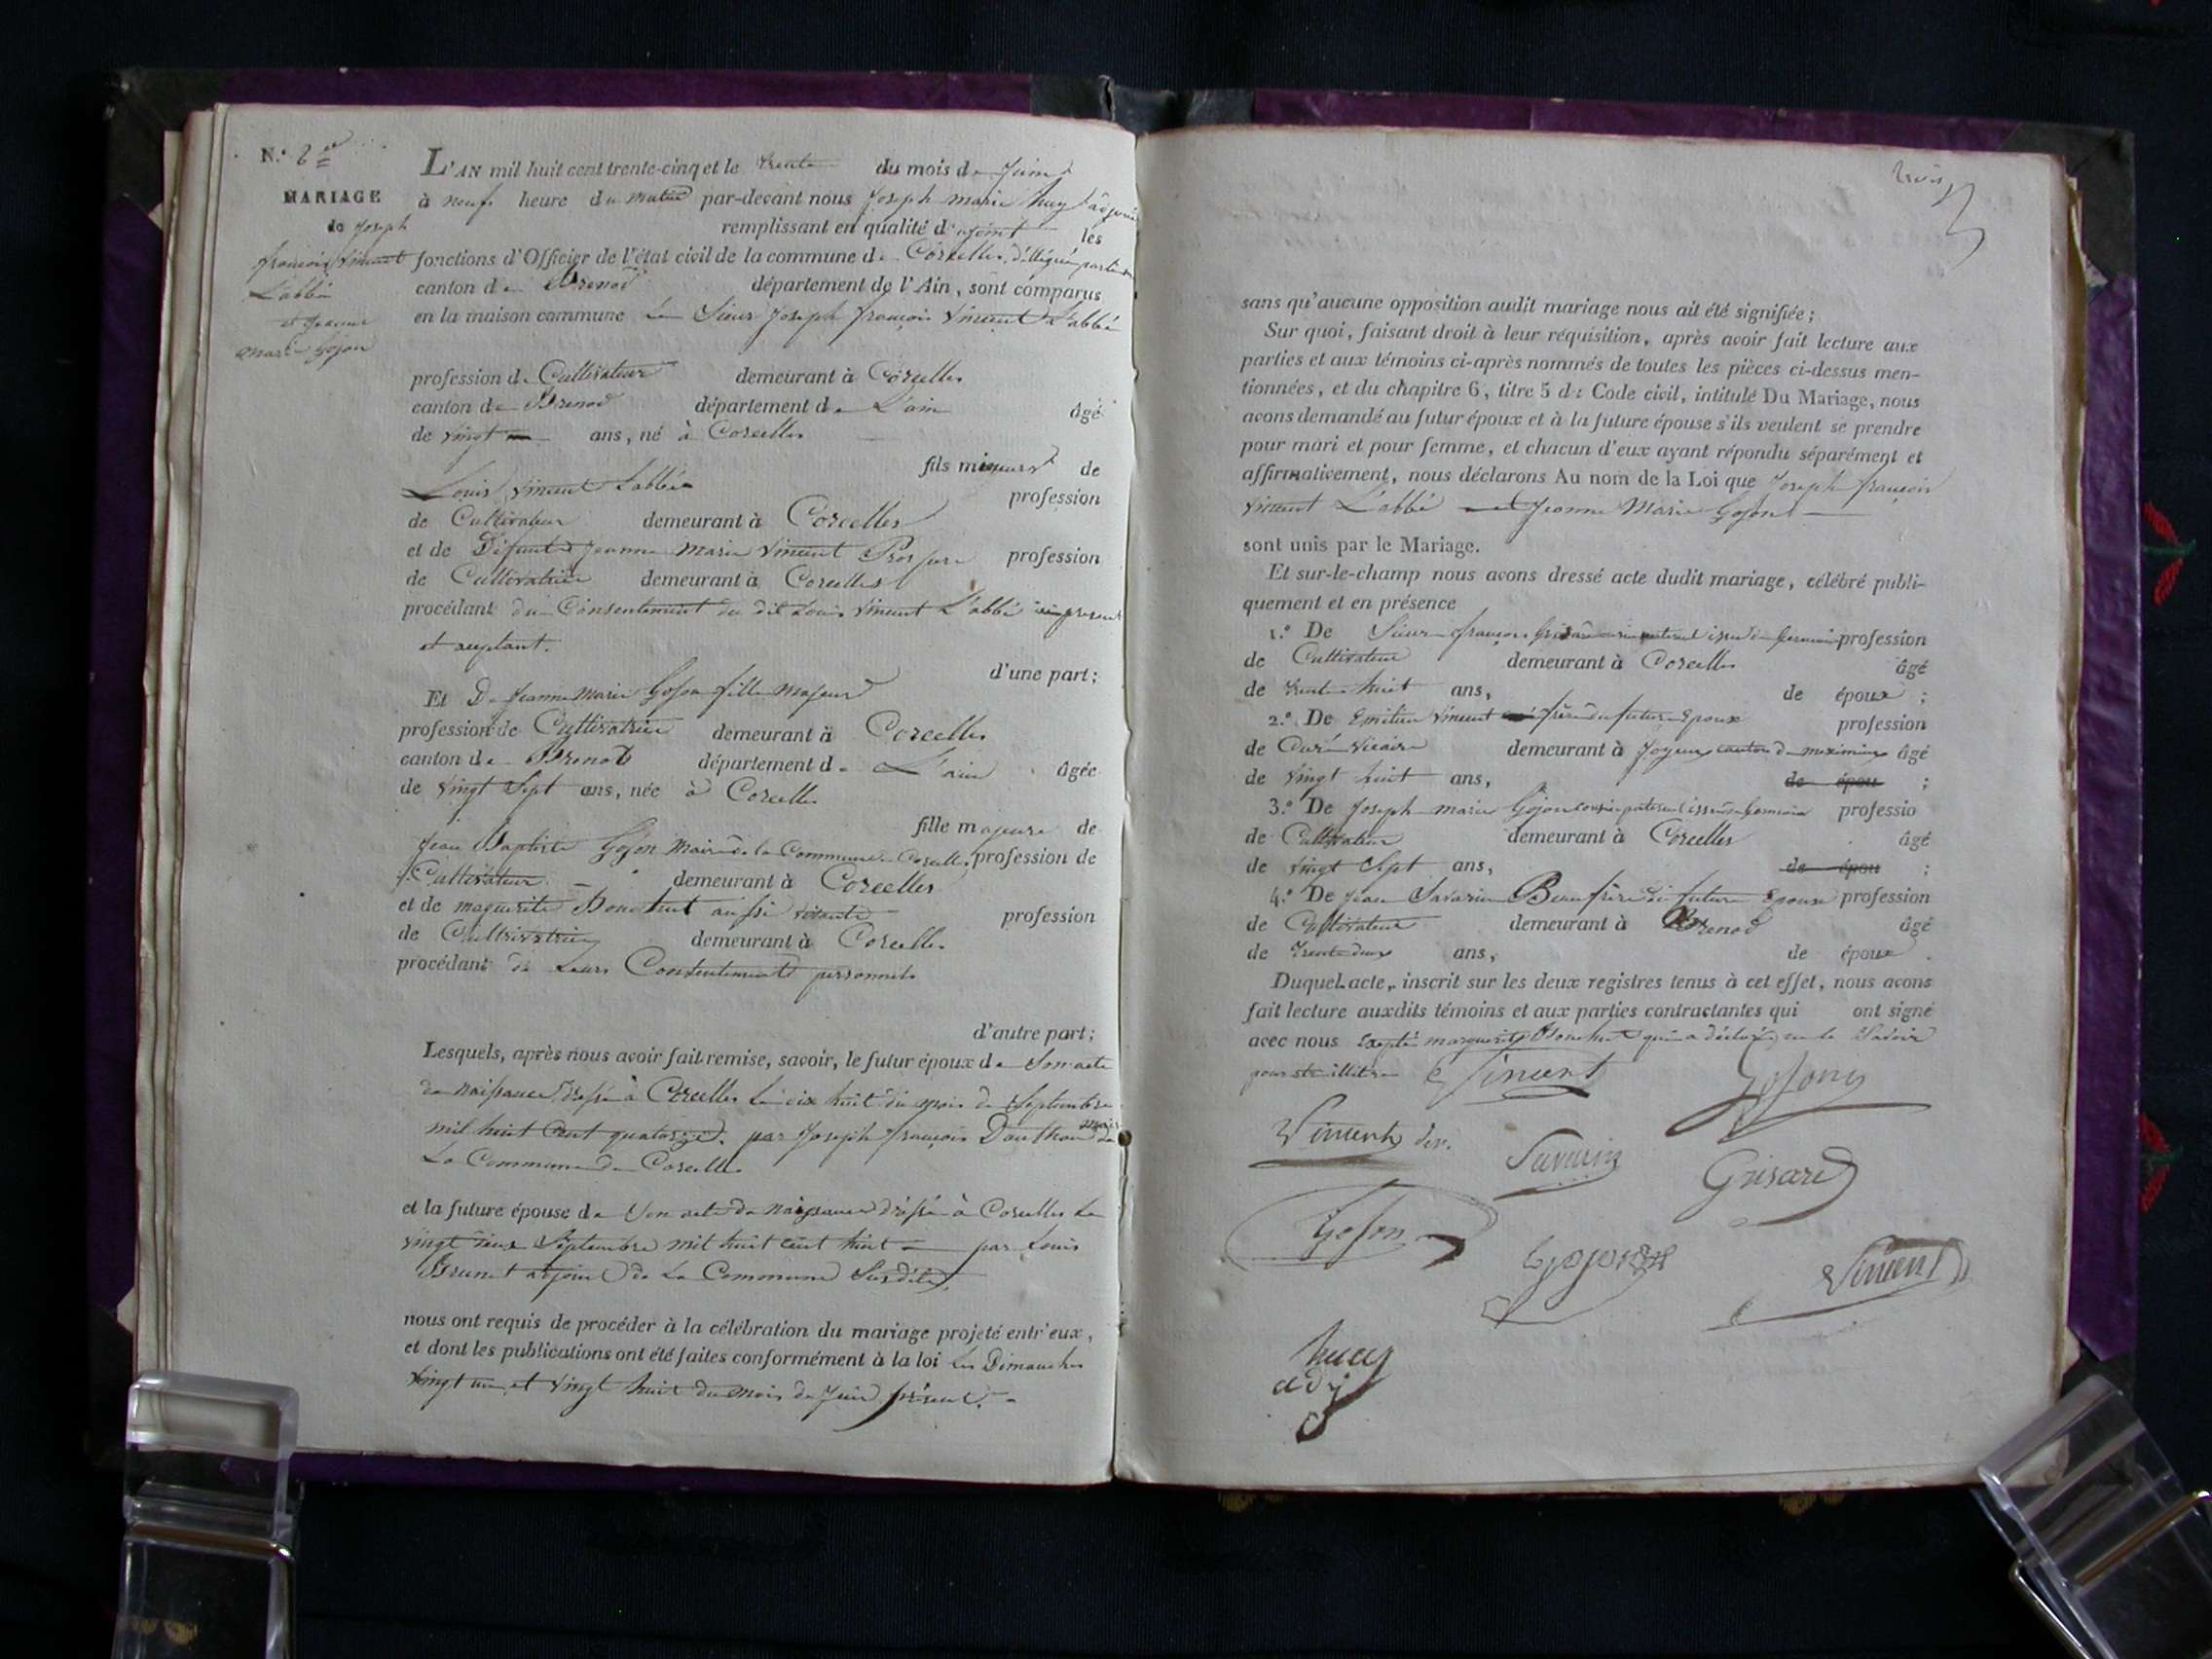 N.° 2
MARIAGE
de Joseph
françois Vincent
L'abbé
et Jeanne
Marie Gojon
L'AN mil huit cent trente-cinq et le trente du mois de Juin
à neufs heure du matin par-devant nous Joseph marie huy adjoint
remplissant en qualité d'ajoint les
fonctions d'Officier de l'état civil de la commune de Corcelles, délégué par le maire
canton de Brenod département de l'Ain, sont comparus
en la maison commune Le Sieur Joseph françois Vincent L'abbé
profession de Cultivateur demeurant à Corcelles
canton de Brenod département de L'ain âgé
de vingt ans, né à Corcelles
fils mineur de
Louis Vincent Labbé profession
de Cultivateur demeurant à Corcelles
et de Défunte Jeanne Marie Vincent Prospere profession
de Cultivatrice demeurant à Corcelles
procédant du Consentement du dit Louis Vincent L'abbé ici présent
et aceptant.
d'une part;
Et De Jeanne Marie Gojon fille majeure
profession de Cultivatrice demeurant à Corcelles
canton de Brenod département de L'ain âgée
de vingt Sept ans, née à Corcelles
fille majeure de
Jean Baptiste Gojon Maire de la Commune de Corcelles, profession de
Cultivateur demeurant à Corcelles
et de marguerite Bonchut aussi vivante profession
de Cultrivatrice demeurant à Corcelles
procédant de Leurs Consentements personnels
d'autre part;
Lesquels, après nous avoir fait remise, savoir, le futur époux de Son acte
de naissance dressé à Corcelles Le dix huit du mois de Septembre
mil huit Cent quatorze. par Joseph françois Douthon maire de
La Commune de Corcelles
et la future épouse de Son acte de naissance dréssé à Corcelles Le
vingt deux Septembre mil huit cent huit par Louis
Brunet adjoint de La Commune Susdite.
nous ont requis de procéder à la célébration du mariage projeté entr'eux,
et dont les publications ont été faites conformément à la loi Les Dimanches
vingt un et vingt huit du mois de Juin présent.
trois
sans qu'aucune opposition audit mariage nous ait été signifiée;
Sur quoi, faisant droit à leur réquisition, après avoir fait lecture aux
parties et aux témoins ci-après nommés de toutes les pièces ci-dessus men-
tionnées, et du chapitre 6, titre 5 du Code civil, intitulé Du Mariage, nous
avons demandé au futur époux et à la future épouse s'ils veulent se prendre
pour mari et pour femme, et chacun d'eux ayant répondu séparément et
affirmativement, nous déclarons Au nom de la Loi que Joseph françois
Vincent L'abbé et Jeanne Marie Gojon
sont unis par le Mariage.
Et sur-le-champ nous avons dressé acte dudit mariage, célébré publi-
quement et en présence
1.° De Sieur françois Grisard cousin maternel issu de Germain profession
de Cultivateur demeurant à Corcelles âgé
de trente huit ans, de époux ;
2.° De Emilien Vincent frère du futur Epoux profession
de Curé vicaire demeurant à Joyeux canton de meximieux âgé
de vingt huit ans, de épou ;
3.° De Joseph marie Gojon cousin paternel issu de Germain professio
de Cultivateur demeurant à Corcelles âgé
de vingt Sept ans, de épou ;
4.° De Jean Savarin Beaufrère du futur Epoux profession
de Cultivateur demeurant à Brenod âgé
de Trente deux ans, de époux.
Duquel acte, inscrit sur les deux registres tenus à cet effet, nous avons
fait lecture auxdits témoins et aux parties contractantes qui ont signé
avec nous Excepté marguerite Bonchut qui a déclaré ne le Savoir
pour être illitrée
E Vincent
Gojon
Vincent
Savarin
Grisard
Gojon
Gojon
Vincent
huy
adj